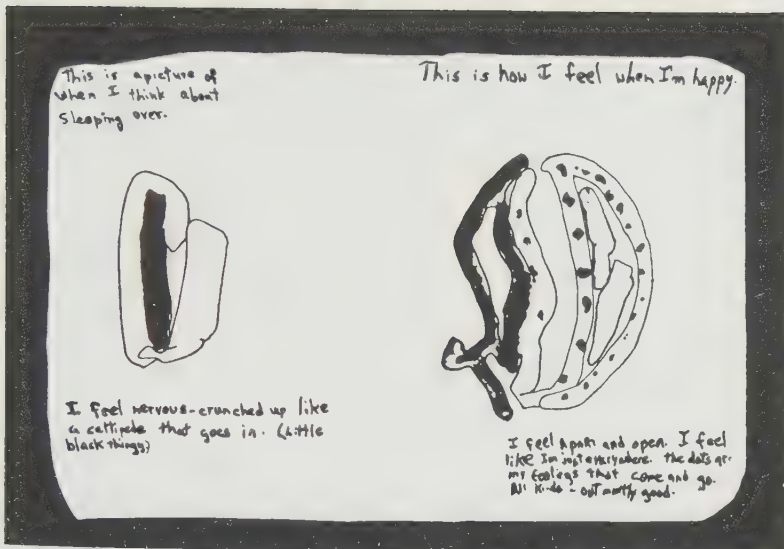 This is a picture of
when I think about
Sleeping over.
This is how I feel when I'm happy.
I feel nervous-crunched up like
a cattipede that goes in. (Little
black thingy)
I feel apart and open. I feel
like I'm just everywhere. the dots are
my feelings that come and go.
All kinds - but mostly good.